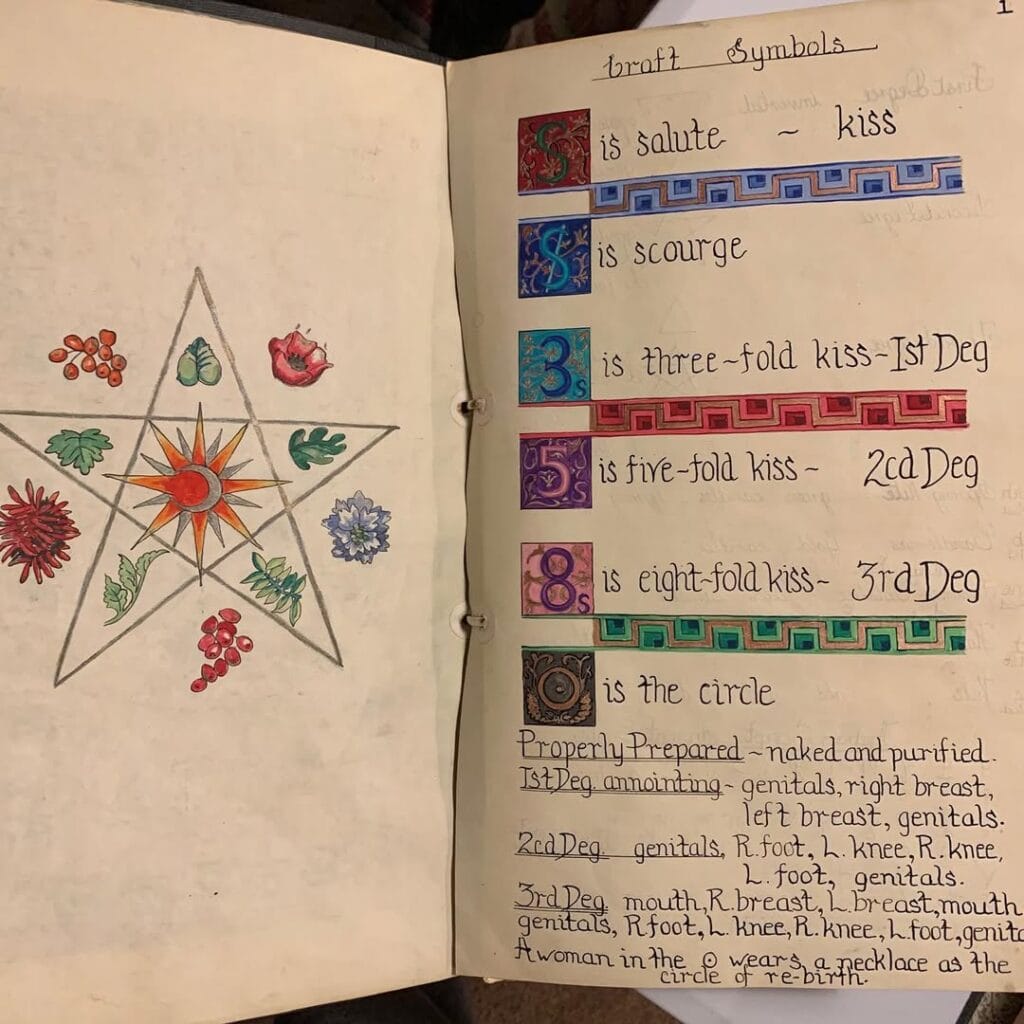 1
Craft Symbols
S is salute ~ kiss
$ is scourge
3s is three~fold kiss~Ist Deg
5s is five-fold kiss ~ 2cd Deg
8s is eight-fold kiss~ 3rd Deg
is the circle
Properly Prepared ~ naked and purified.
Ist Deg. annointing ~ genitals, right breast,
left breast, genitals.
2cd Deg. genitals, R. foot, L. knee, R. knee,
L. foot, genitals.
3rd Deg. mouth, R. breast, L. breast, mouth
genitals, R foot, L. knee, R. knee, L. foot, genita
A woman in the ⊙ wears a necklace as the
circle of re-birth.